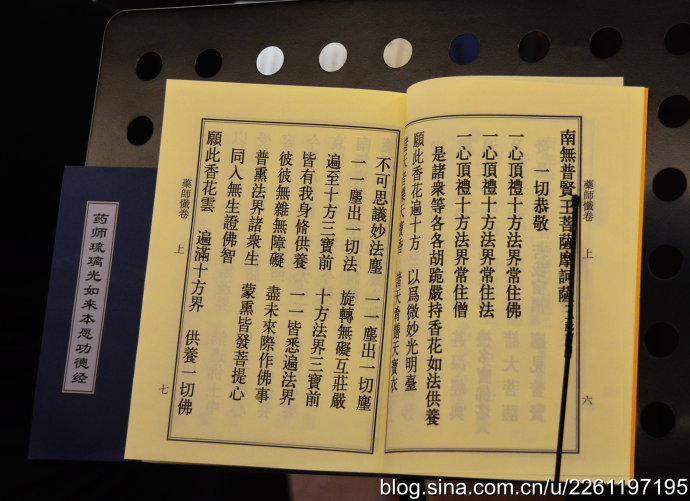 南無普賢王菩薩摩訶薩
一切恭敬
一心頂禮十方法界常住佛
一心頂禮十方法界常住法
一心頂禮十方法界常住僧
是諸衆等各各胡跪嚴持香花如法供養
願此香花遍十方 以爲微妙光明臺
諸天音樂天寶香 諸天肴膳天寶衣
藥師懺卷 上 六
不可思議妙法塵 一一塵出一切塵
一一塵出一切法 旋轉無礙互莊嚴
遍至十方三寶前 十方法界三寶前
皆有我身脩供養 一一皆悉遍法界
彼彼無雜無障礙 盡未來際作佛事
普熏法界諸衆生 蒙熏皆發菩提心
同入無生證佛智
願此香花雲 遍滿十方界 供養一切佛
藥師懺卷 上 七
药师琉璃光如来本愿功德经
blog.sina.com.cn/u/2261197195